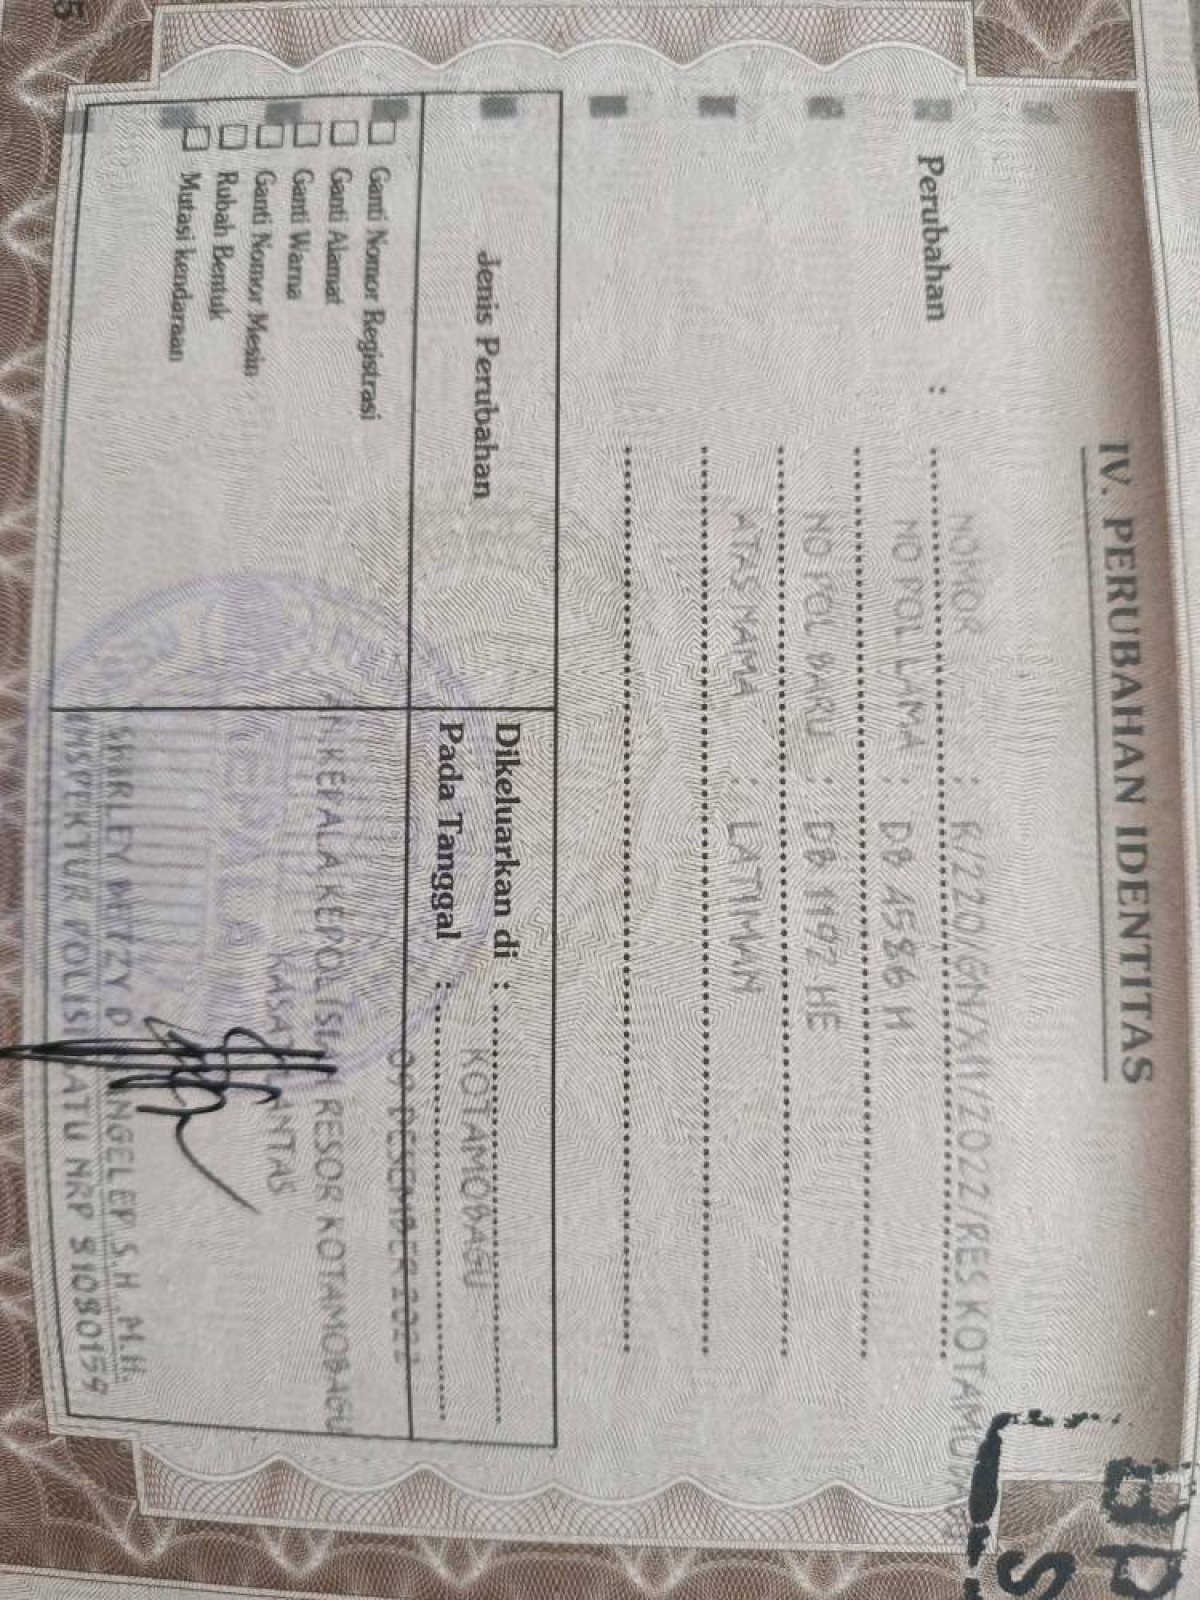 IV. PERUBAHAN IDENTITAS
Perubahan :
NOMOR : R/220/GN/XII/2022/RES KOTAMOBAGU
NO POL LAMA : DB 4586 H
NO POL BARU : DB 1192 HE
ATAS NAMA : LATIMAN
Jenis Perubahan
Ganti Nomor Registrasi
Ganti Alamat
Ganti Warna
Ganti Nomor Mesin
Rubah Bentuk
Mutasi kendaraan
Dikeluarkan di : KOTAMOBAGU
Pada Tanggal : 09 DESEMBER 2022
AN KEPALA KEPOLISIAN RESOR KOTAMOBAGU
KASAT LANTAS
SHIRLEY BETZY D ANGELEP S.H M.H.
INSPEKTUR POLISI SATU NRP 81080159
5